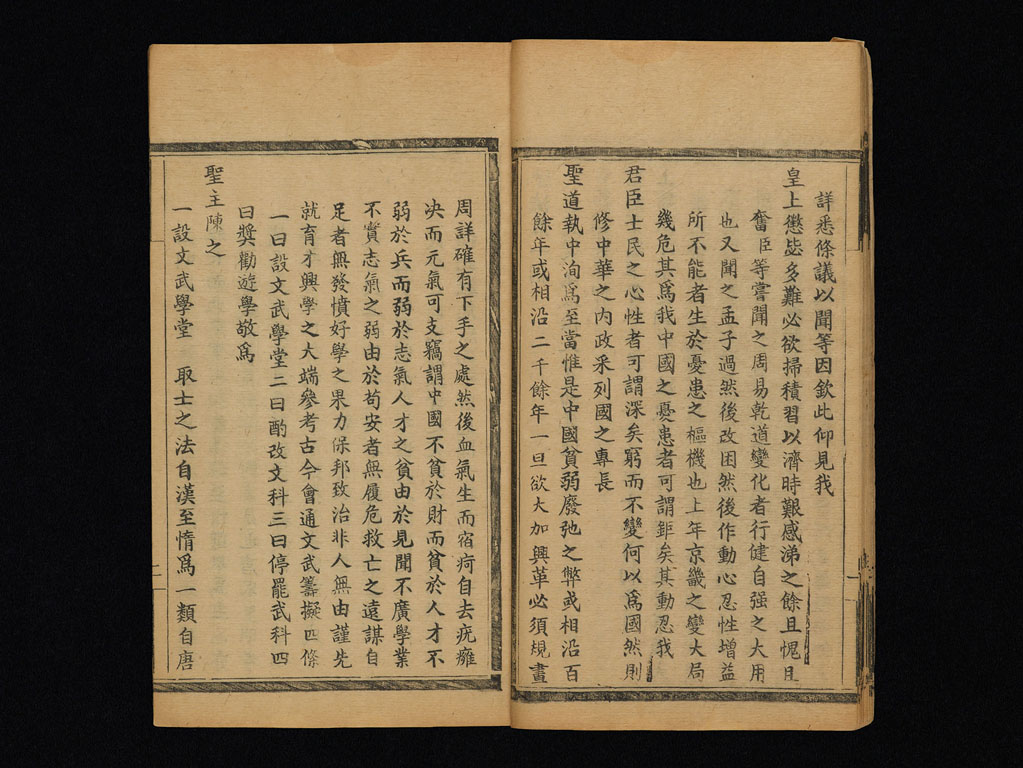 詳悉條議以聞等因欽此仰見我
皇上懲毖多難必欲掃積習以濟時艱感涕之餘且愧且
奮臣等嘗聞之周易乾道變化者行健自强之大用
也又聞之孟子過然後改困然後作動心忍性增益
所不能者生於憂患之樞機也上年京畿之變大局
幾危其爲我中國之憂患者可謂鉅矣其動忍我
君臣士民之心性者可謂深矣窮而不變何以爲國然則
修中華之內政采列國之專長
聖道執中洵爲至當惟是中國貧弱廢弛之弊或相沿百
餘年或相沿二千餘年一旦欲大加興革必須規畫
周詳確有下手之處然後血氣生而宿疴自去疣癰
决而元氣可支竊謂中國不貧於財而貧於人才不
弱於兵而弱於志氣人才之貧由於見聞不廣學業
不實志氣之弱由於苟安者無履危救亡之遠謀自
足者無發憤好學之果力保邦致治非人無由謹先
就育才興學之大端參考古今會通文武籌擬四條
一曰設文武學堂二曰酌改文科三曰停罷武科四
曰奬勸遊學敬爲
聖主陳之
一設文武學堂 取士之法自漢至惰爲一類自唐